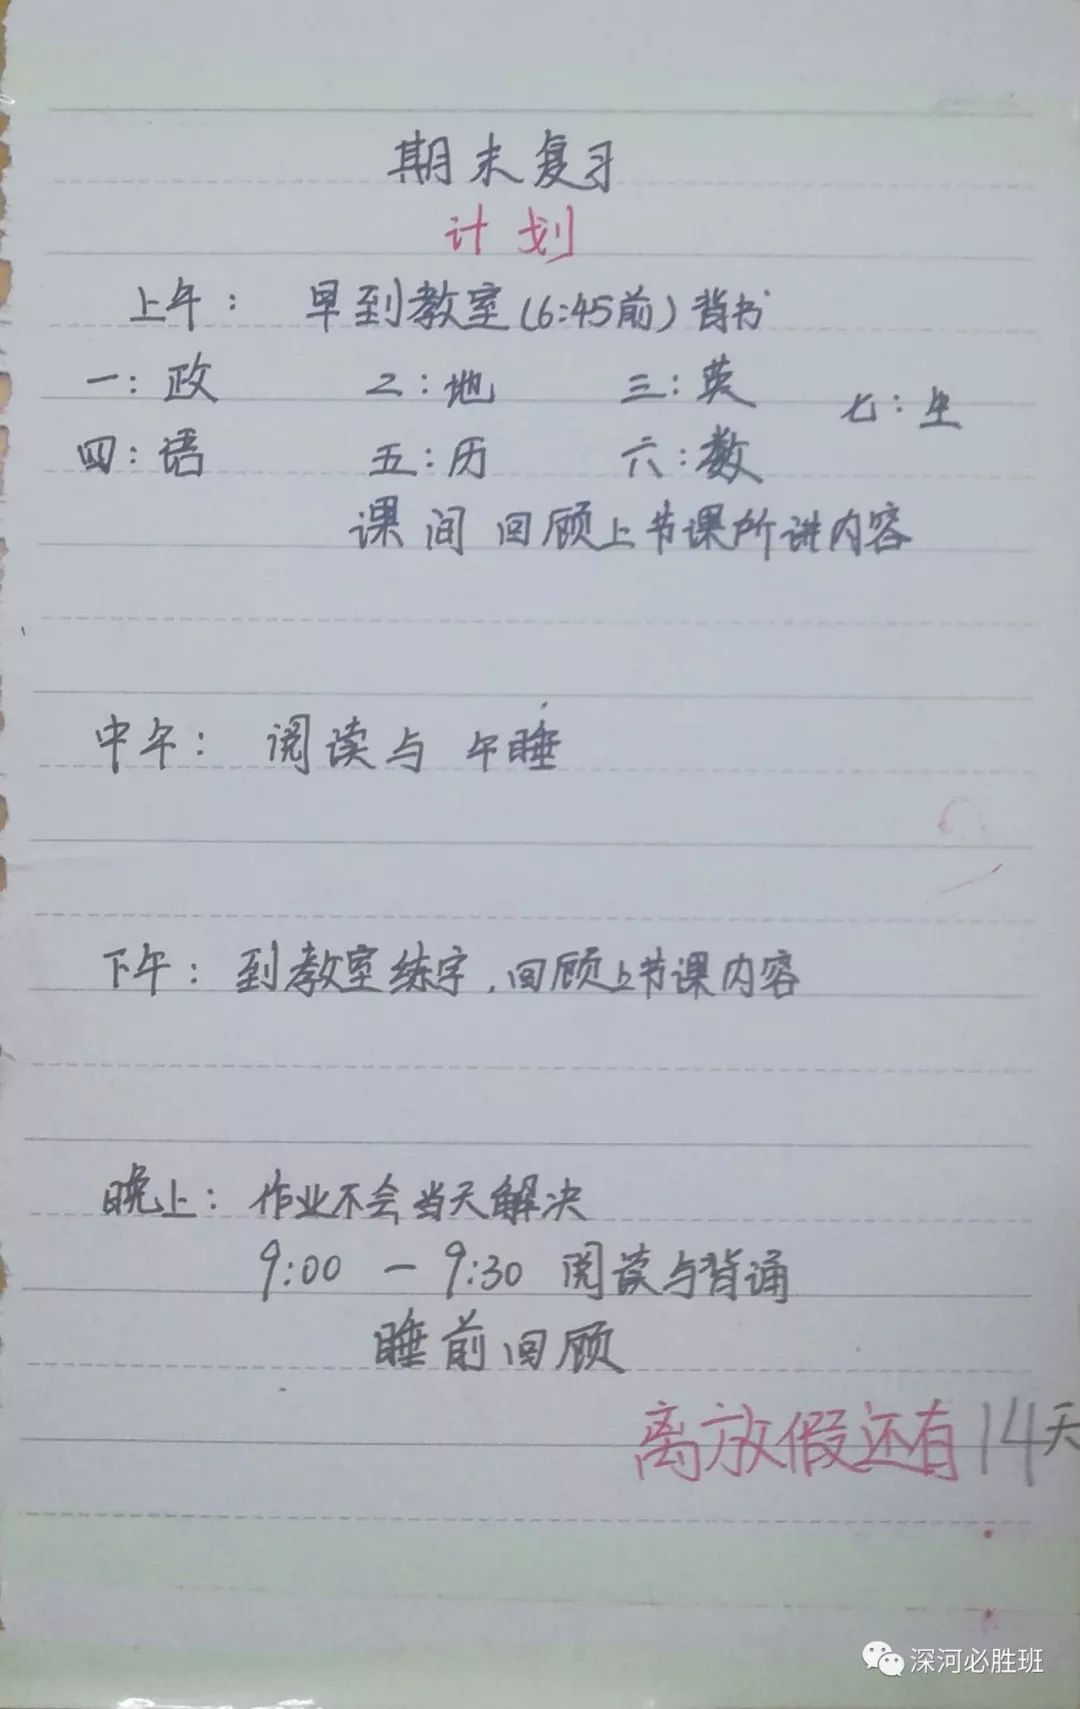 期末复习
计划
上午： 早到教室(6:45前)背书
一：政 二：地 三：英 七：生
四：语 五：历 六：数
课间 回顾上节课所讲内容
中午： 阅读与 午睡
下午：到教室练字，回顾上节课内容
晚上：作业不会当天解决
9:00 — 9:30 阅读与背诵
睡前回顾
离放假还有14天
深河必胜班